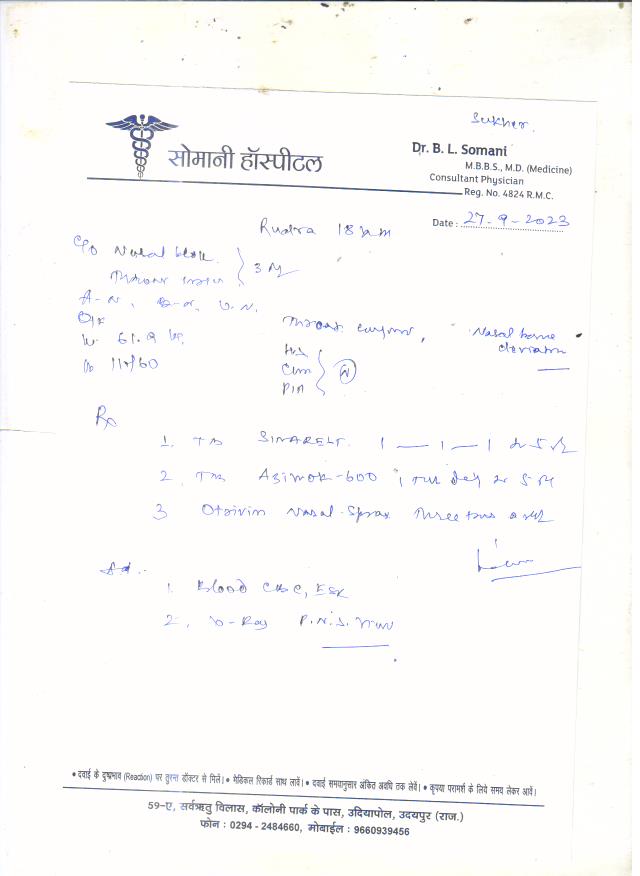 Sukher.
सोमानी हॉस्पीटल
Dr. B. L. Somani
M.B.B.S., M.D. (Medicine)
Consultant Physician
Reg. No. 4824 R.M.C.
Date : 27-9-2023
Rudra 18
C/o Nasal block
Throat
A-N, B-N, U.N.
O/E
Throat
Nasal bone
deviation
Wt 61.9
110/60
H/L
P/A
N
Rx
1. Tab SINAREST 1 — 1 — 1
2. Tab 600
3 Otrivin Nasal Spray Three
Ad.
1. Blood CBC, ESR
2. X-Ray P.N.S. view
• दवाई के दुष्प्रभाव (Reaction) पर तुरन्त डॉक्टर से मिलें। • मेडिकल रिकार्ड साथ लावें। • दवाई समयानुसार अंकित अवधि तक लेवें। • कृपया परामर्श के लिये समय लेकर आवें।
59-ए, सर्वऋतु विलास, कॉलोनी पार्क के पास, उदियापोल, उदयपुर (राज.)
फोन : 0294 - 2484660, मोबाईल : 9660939456